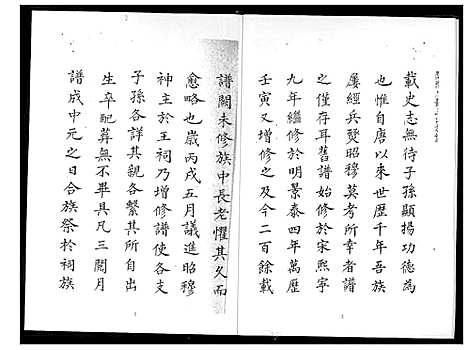 載史志無待子孫顯揚功德為
也惟自唐以来世歷千年吾族
屢經兵燹昭穆莫考所幸者譜
之僅存耳舊譜始修於宋熙寧
九年繼修於明景泰四年萬歷
壬寅又增修之及今二百餘載
譜闕未修族中長老懼其久而
愈略也歲丙戌五月議進昭穆
神主於王祠乃增修譜使各支
子孫各詳其親各繫其所自出
生卒配葬無不畢具凡三閱月
譜成中元之日合族祭於祠族